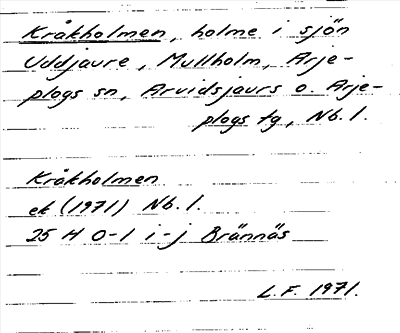 Kråkholmen, holme i sjön
Uddjaure, Mullholm, Arje-
plogs sn, Arvidsjaurs o. Arje-
plogs tg, Nb. l.
Kråkholmen
ek (1971) Nb. l.
25 H 0-1 i-j Brännäs
L.F. 1971.